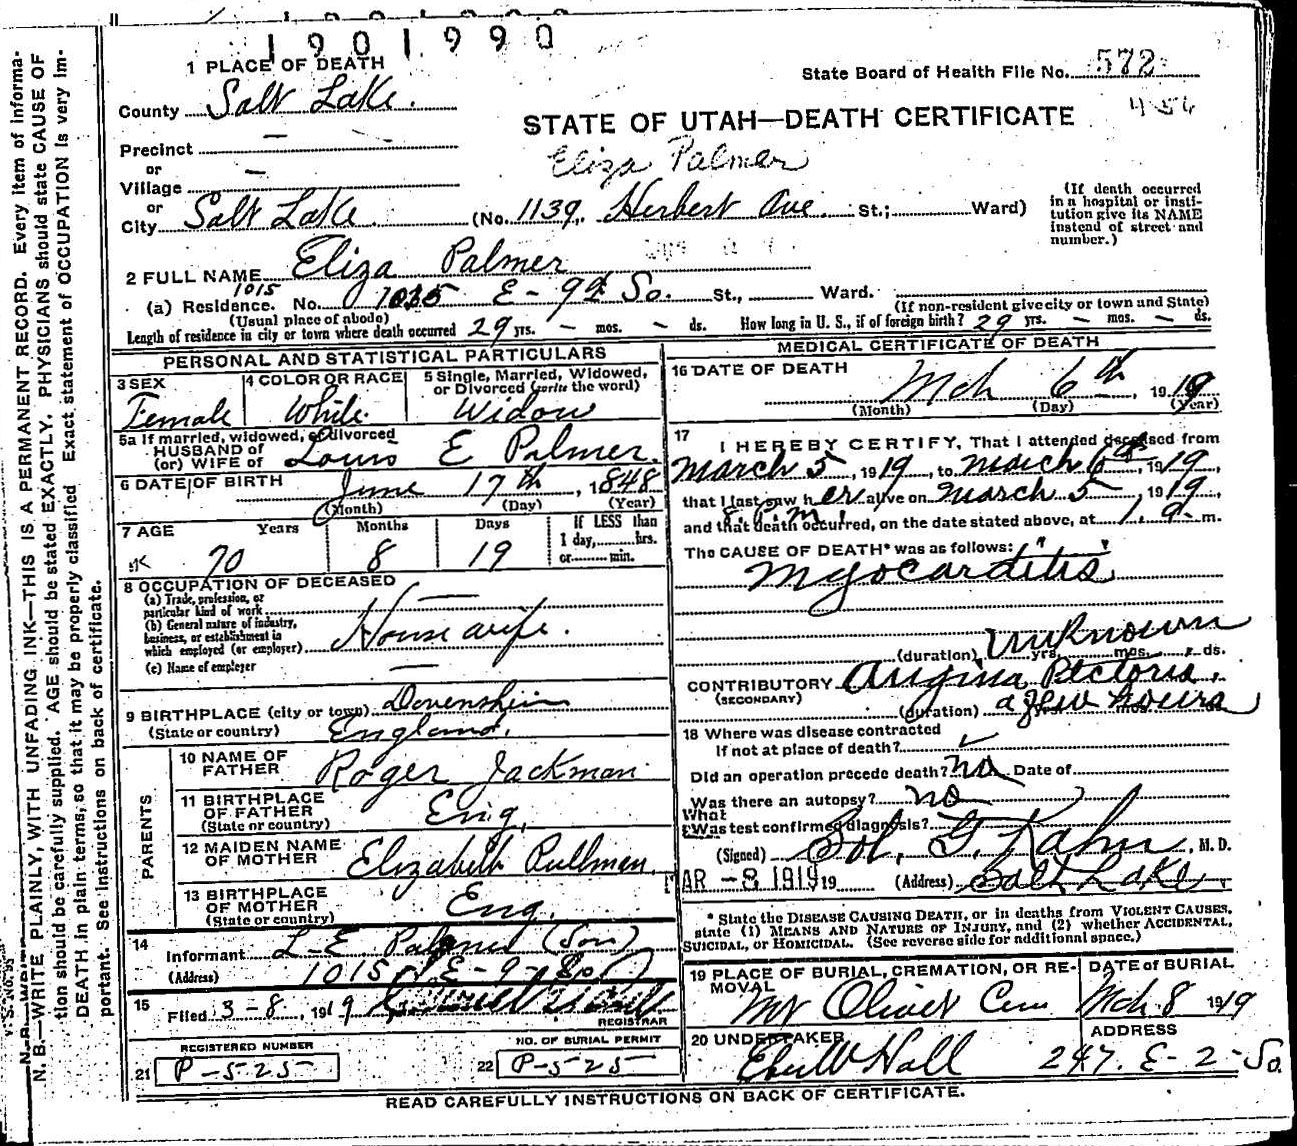 1901990
1 PLACE OF DEATH
State Board of Health File No. 572
County Salt Lake.
STATE OF UTAH—DEATH CERTIFICATE
456
Precinct —
Eliza Palmer
or
Village —
or
City Salt Lake (No. 1139, Herbert Ave. St.; Ward)
(If death occurred in a hospital or institution give its NAME instead of street and number.)
2 FULL NAME Eliza Palmer
1015
(a) Residence. No. E - 9th So. St., Ward.
(Usual place of abode)
(If non-resident give city or town and State)
Length of residence in city or town where death occurred 29 yrs. — mos. — ds. How long in U. S., if of foreign birth? 29 yrs. — mos. — ds.
PERSONAL AND STATISTICAL PARTICULARS
3 SEX
Female
4 COLOR OR RACE
White
5 Single, Married, Widowed, or Divorced (write the word)
Widow
5a If married, widowed, or divorced
HUSBAND of
(or) WIFE of Louis E Palmer.
6 DATE OF BIRTH June 17th, 1848
(Month) (Day) (Year)
7 AGE Years Months Days If LESS than
1 day, hrs.
or min.
70 8 19
8 OCCUPATION OF DECEASED
(a) Trade, profession, or
particular kind of work —
(b) General nature of industry,
business, or establishment in
which employed (or employer) Housewife.
(c) Name of employer —
9 BIRTHPLACE (city or town) Devenshire
(State or country) England.
PARENTS
10 NAME OF FATHER Roger Jackman
11 BIRTHPLACE OF FATHER (State or country) Eng.
12 MAIDEN NAME OF MOTHER Elizabeth Pullman.
13 BIRTHPLACE OF MOTHER (State or country) Eng.
14
Informant L-E Palmer (Son)
(Address) 1015 E-9-So
15
Filed 3-8, 1919
REGISTRAR
REGISTERED NUMBER
21 P-525
NO. OF BURIAL PERMIT
22 P-525
MEDICAL CERTIFICATE OF DEATH
16 DATE OF DEATH Mch 6th, 1919
(Month) (Day) (Year)
17
I HEREBY CERTIFY, That I attended deceased from
March 5, 1919, to March 6th, 1919,
that I last saw her alive on March 5, 1919,
8. P. M.
and that death occurred, on the date stated above, at 1. a. m.
The CAUSE OF DEATH* was as follows:
Myocarditis
(duration) Unknown yrs. mos. ds.
CONTRIBUTORY Angina Pectoris,
(SECONDARY)
(duration) a few hours
18 Where was disease contracted
If not at place of death?
Did an operation precede death? no Date of
Was there an autopsy? no
What
Was test confirmed diagnosis?
(Signed) Sol. G. Kahn, M. D.
AR -8 1919 19 (Address) Salt Lake.
* State the DISEASE CAUSING DEATH, or in deaths from VIOLENT CAUSES,
state (1) MEANS AND NATURE OF INJURY, and (2) whether ACCIDENTAL,
SUICIDAL, or HOMICIDAL. (See reverse side for additional space.)
19 PLACE OF BURIAL, CREMATION, OR REMOVAL
Mt Olivet Cem
DATE of BURIAL
Mch 8 1919
20 UNDERTAKER
Eber W Hall
ADDRESS
247. E-2-So.
READ CAREFULLY INSTRUCTIONS ON BACK OF CERTIFICATE.
N. B.—WRITE PLAINLY, WITH UNFADING INK—THIS IS A PERMANENT RECORD. Every item of information should be carefully supplied. AGE should be stated EXACTLY. PHYSICIANS should state CAUSE OF DEATH in plain terms, so that it may be properly classified. Exact statement of OCCUPATION is very important. See instructions on back of certificate.